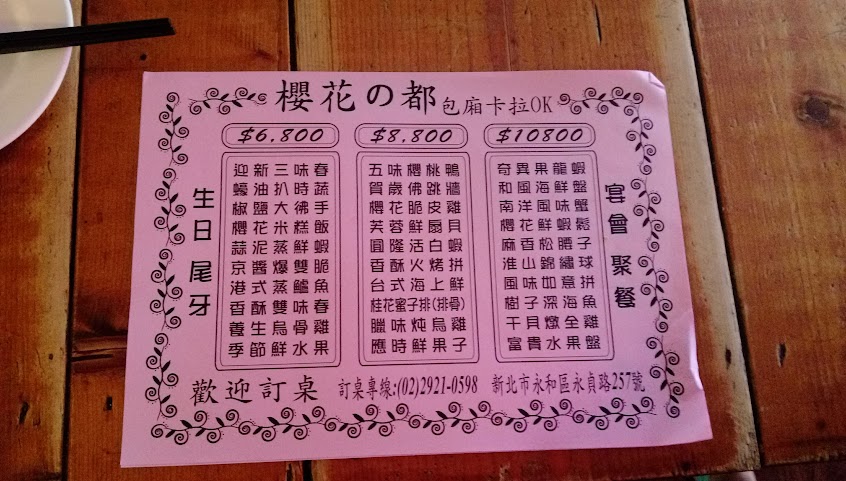 櫻花の都 包廂卡拉OK
生日 尾牙
$6,800
迎新三味春
蠔油扒時蔬
椒鹽大彿手
櫻花米糕飯
蒜泥蒸鮮蝦
京醬爆雙脆
港式蒸鱸魚
香酥雙味春
養生烏骨雞
季節鮮水果
$8,800
五味櫻桃鴨
賀歲佛跳牆
櫻花脆皮雞
芙蓉鮮扇貝
圓隆活白蝦
香酥火烤拼
台式海上鮮
桂花蜜子排(排骨)
臘味炖烏雞
應時鮮果子
$10800
奇異果龍蝦
和風海鮮盤
南洋風味蟹
櫻花鮮蝦鬆
麻香松勝子
淮山錦繡球
風味如意拼
樹子深海魚
干貝燉全雞
富貴水果盤
宴會 聚餐
歡迎訂桌 訂桌專線:(02)2921-0598 新北市永和區永貞路257號